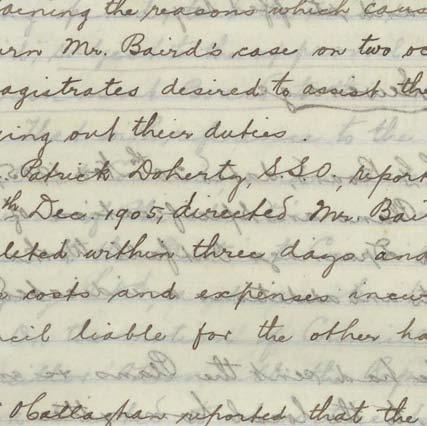 aining the reasons which caus
urn Mr. Baird's case on two oc
agistrates desired to assist the
ying out their duties.
Patrick Doherty, S.S.O., report
th Dec. 1905, directed Mr. Bai
leted within three days and
costs and expenses incur
ncil liable for the other ha
O'Callaghan reported that the